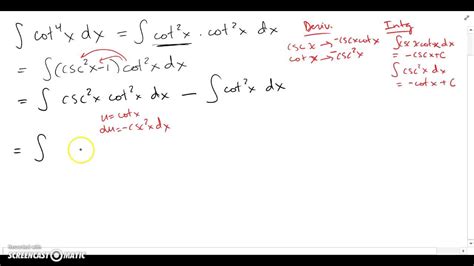 ∫ cot⁴x dx = ∫ cot²x · cot²x dx
= ∫(csc²x-1) cot²x dx
= ∫ csc²x cot²x dx - ∫ cot²x dx
u = cotx
du = -csc²x dx
= ∫
Deriv.
cscx → -cscxcotx
cotx → -csc²x
Intg
∫cscxcotx dx
= -cscx+C
∫csc²x dx
= -cotx + C
Recorded with
SCREENCAST-O-MATIC